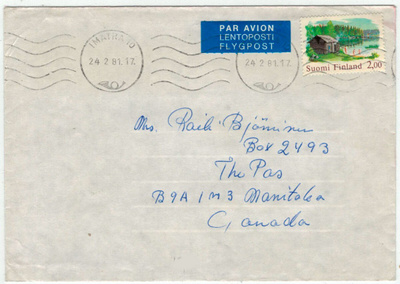 PAR AVION
LENTOPOSTI
FLYGPOST
IMATRA 10
24 2 81.17
24.2 81.17
Suomi Finland 2,00
Mrs. Raili
Box 2493
The Pas
B9A 1M3 Manitoba
Canada